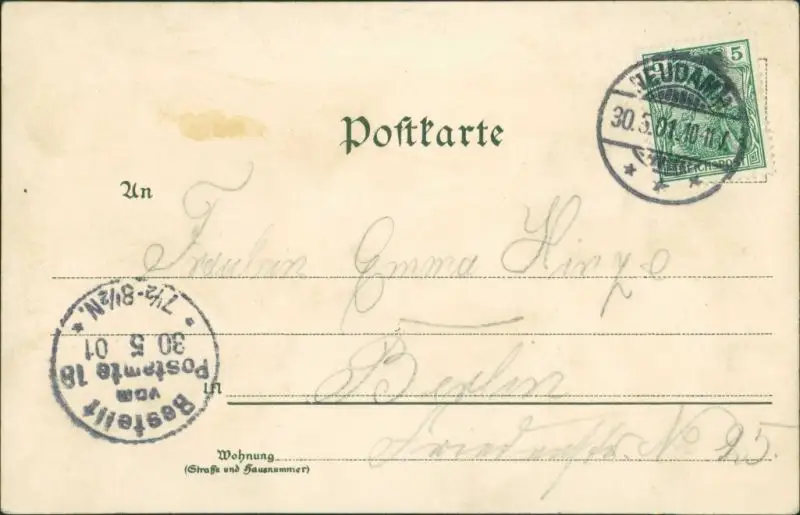 5
NEUDAMM
30.5.01.10-11V.
REICHSPOST
Postkarte
An
Fräulein Emma Hinze
7½-8½N.
30 5 01
Postamte 18
vom
Bestellt
in Berlin
Friedenstr. No 25.
Wohnung
(Straße und Hausnummer)